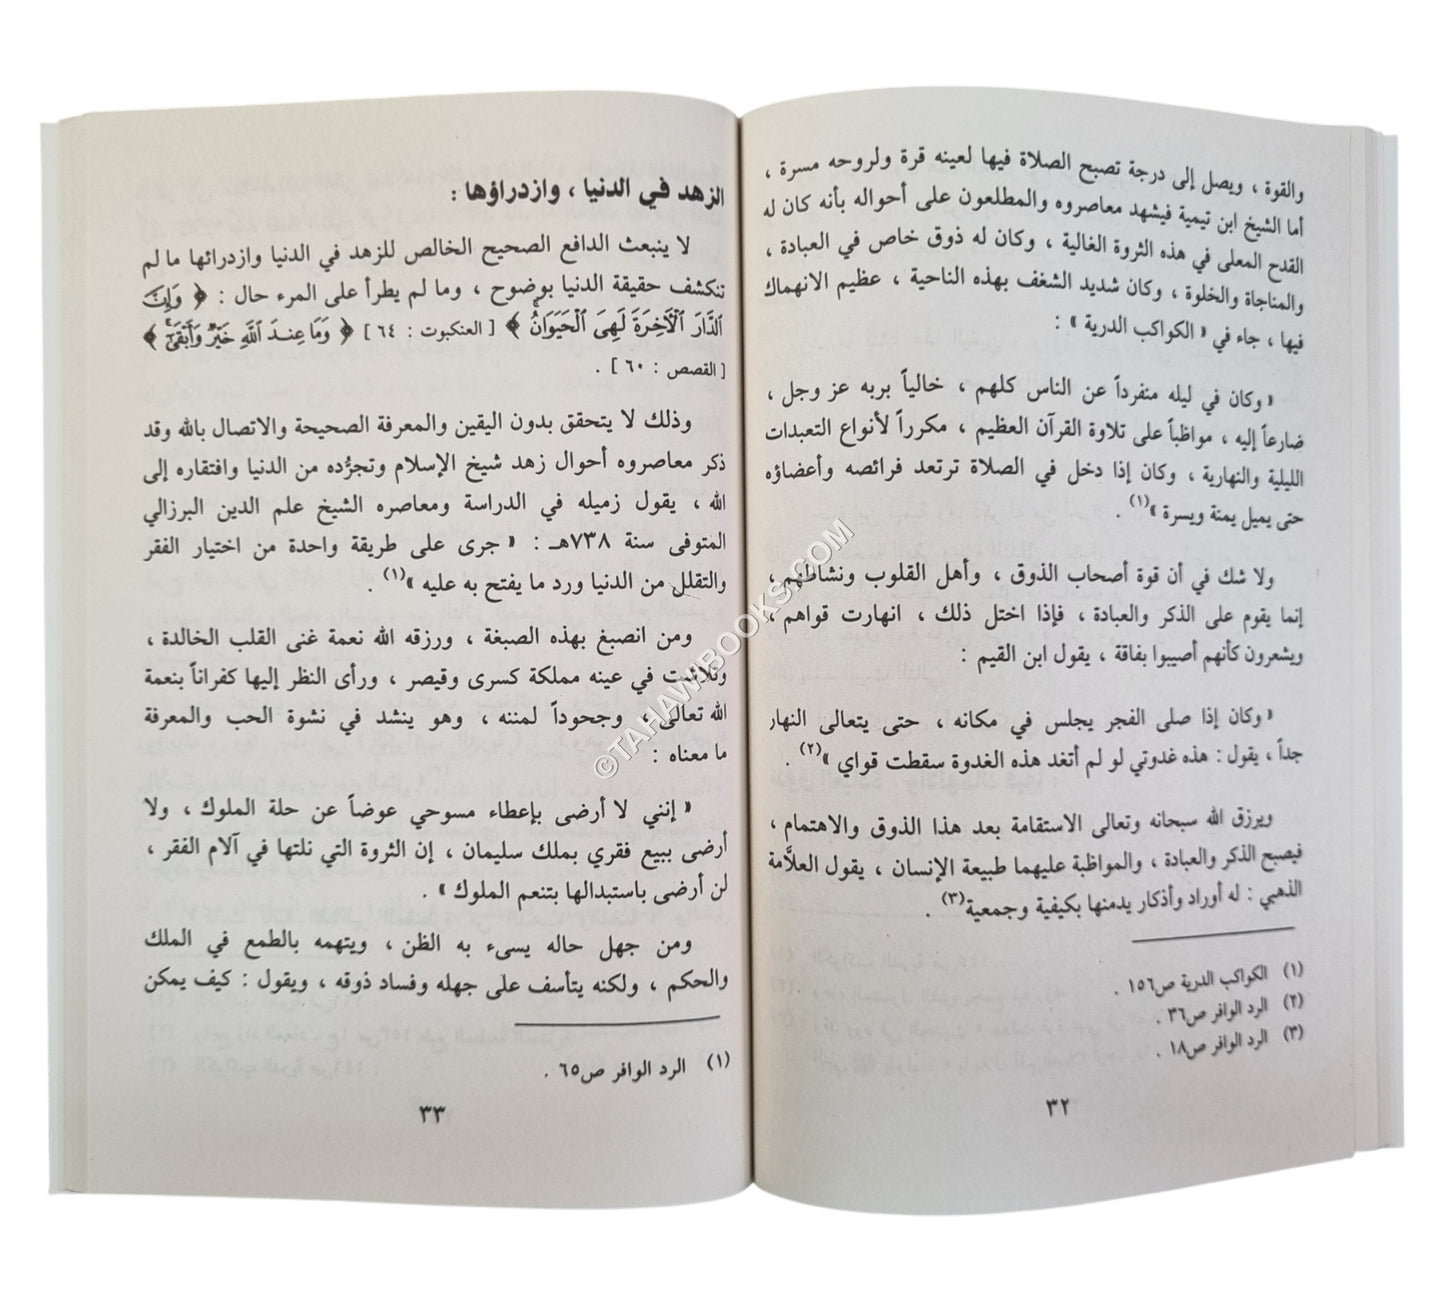 والقوة ، ويصل إلى درجة تصبح الصلاة فيها لعينه قرة ولروحه مسرة ،
أما الشيخ ابن تيمية فيشهد معاصروه والمطلعون على أحواله بأنه كان له
القدح المعلى في هذه الثروة الغالية ، وكان له ذوق خاص في العبادة ،
والمناجاة والخلوة ، وكان شديد الشغف بهذه الناحية ، عظيم الانهماك
فيها ، جاء في « الكواكب الدرية » :
« وكان في ليله منفرداً عن الناس كلهم ، خالياً بربه عز وجل ،
ضارعاً إليه ، مواظباً على تلاوة القرآن العظيم ، مكرراً لأنواع التعبدات
الليلية والنهارية ، وكان إذا دخل في الصلاة ترتعد فرائصه وأعضاؤه
حتى يميل يمنة ويسرة »(١) .
ولا شك في أن قوة أصحاب الذوق ، وأهل القلوب ونشاطهم ،
إنما يقوم على الذكر والعبادة ، فإذا اختل ذلك ، انهارت قواهم ،
ويشعرون كأنهم أصيبوا بفاقة ، يقول ابن القيم :
« وكان إذا صلى الفجر يجلس في مكانه ، حتى يتعالى النهار
جداً ، يقول : هذه غدوتي لو لم أتغد هذه الغدوة سقطت قواي »(٢) .
ويرزق الله سبحانه وتعالى الاستقامة بعد هذا الذوق والاهتمام ،
فيصبح الذكر والعبادة ، والمواظبة عليهما طبيعة الإنسان ، يقول العلاَّمة
الذهبي : له أوراد وأذكار يدمنها بكيفية وجمعية(٣) .
(١) الكواكب الدرية ص١٥٦ .
(٢) الرد الوافر ص٣٦ .
(٣) الرد الوافر ص١٨ .
٣٢
الزهد في الدنيا ، وازدراؤها :
لا ينبعث الدافع الصحيح الخالص للزهد في الدنيا وازدرائها ما لم
تنكشف حقيقة الدنيا بوضوح ، وما لم يطرأ على المرء حال : ﴿ وَإِنَّ
ٱلدَّارَ ٱلْآخِرَةَ لَهِىَ ٱلْحَيَوَانُ ﴾ [ العنكبوت : ٦٤ ] ﴿ وَمَا عِندَ ٱللَّهِ خَيْرٌ وَأَبْقَىٰ ﴾
[ القصص : ٦٠ ] .
وذلك لا يتحقق بدون اليقين والمعرفة الصحيحة والاتصال بالله وقد
ذكر معاصروه أحوال زهد شيخ الإسلام وتجرُّده من الدنيا وافتقاره إلى
الله ، يقول زميله في الدراسة ومعاصره الشيخ علم الدين البرزالي
المتوفى سنة ٧٣٨هـ : « جرى على طريقة واحدة من اختيار الفقر
والتقلل من الدنيا ورد ما يفتح به عليه »(١) .
ومن انصبغ بهذه الصبغة ، ورزقه الله نعمة غنى القلب الخالدة ،
وتلاشت في عينه مملكة كسرى وقيصر ، ورأى النظر إليها كفراناً بنعمة
الله تعالى ، وجحوداً لمننه ، وهو ينشد في نشوة الحب والمعرفة
ما معناه :
« إنني لا أرضى بإعطاء مسوحي عوضاً عن حلة الملوك ، ولا
أرضى ببيع فقري بملك سليمان ، إن الثروة التي نلتها في آلام الفقر ،
لن أرضى باستبدالها بتنعم الملوك » .
ومن جهل حاله يسىء به الظن ، ويتهمه بالطمع في الملك
والحكم ، ولكنه يتأسف على جهله وفساد ذوقه ، ويقول : كيف يمكن
(١) الرد الوافر ص٦٥ .
٣٣
©TAHAWIBOOKS.COM